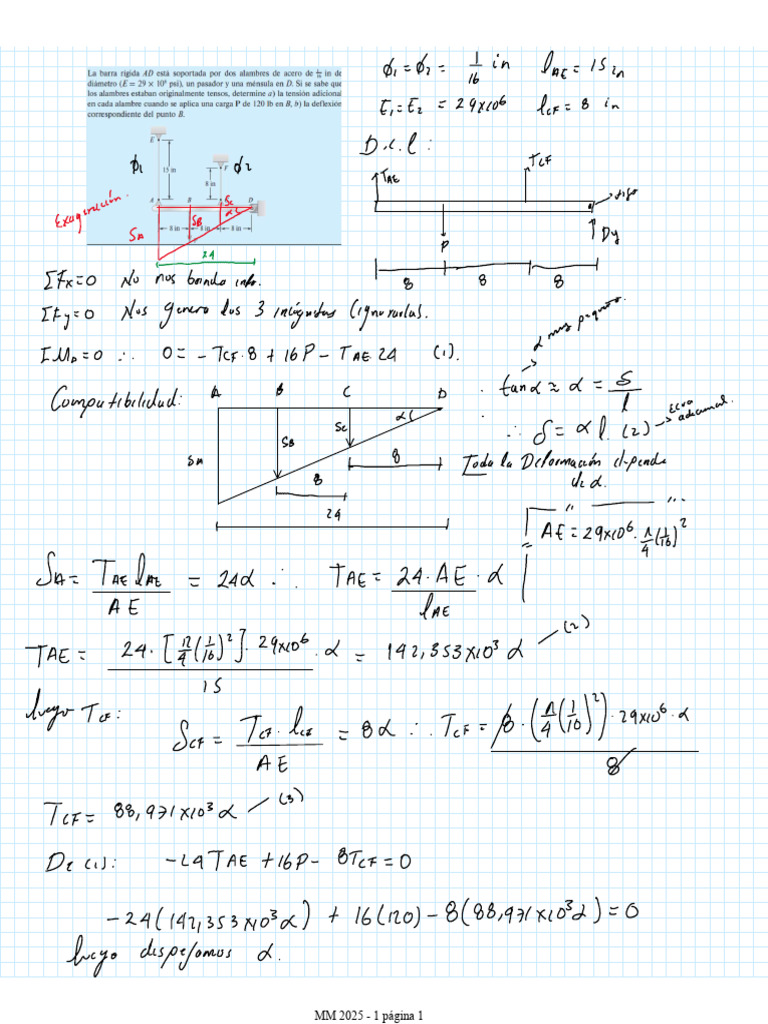 La barra rígida AD está soportada por dos alambres de acero de 1/16 in de
diámetro (E = 29 × 10⁶ psi), un pasador y una ménsula en D. Si se sabe que
los alambres estaban originalmente tensos, determine a) la tensión adicional
en cada alambre cuando se aplica una carga P de 120 lb en B, b) la deflexión
correspondiente del punto B.
ϕ₁ = ϕ₂ = 1/16 in    l_AE = 15 in
E₁ = E₂ = 29x10⁶    l_CF = 8 in
D.c.l:
E
F
ϕ₁
15 in
ϕ₂
8 in
A
B
C
D
8 in
8 in
8 in
Exageración.
δA
δB
δc
α
24
T_AE
T_CF
P
Dy
8
8
8
ΣFx=0 No nos brinda info.
ΣFy=0 Nos genera las 3 incógnitas (ignorarlas.
ΣM_D=0 ∴ 0 = -T_CF·8 + 16P - T_AE·24 (1).
Compatibilidad:
A
B
C
D
δA
δB
δc
α
8
8
24
α muy pequeño.
· tanα ≈ α = δ/l
∴ δ = α l. (2) → Ecua adicional.
Toda la Deformación depende
de α.
AE = 29x10⁶ · π/4 (1/16)²
δA = T_AE l_AE / AE = 24α ∴ T_AE = 24·AE·α / l_AE
T_AE = 24·[π/4 (1/16)²]·29x10⁶·α / 15 = 142,353x10³ α (2)
luego T_CF:
δ_CF = T_CF · l_CF / AE = 8α ∴ T_CF = 8·(π/4 (1/16)²)·29x10⁶·α / 8
T_CF = 88,971x10³ α (3)
De (1): -24T_AE + 16P - 8T_CF = 0
-24(142,353x10³α) + 16(120) - 8(88,971x10³α) = 0
luego despejamos α.
MM 2025 - 1 página 1